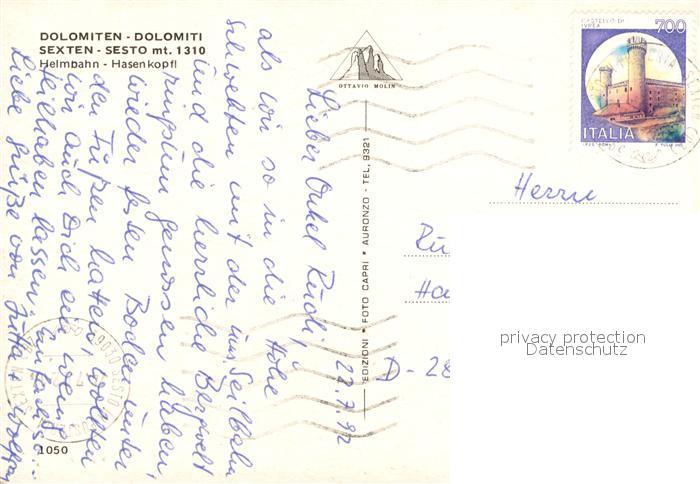 DOLOMITEN - DOLOMITI
SEXTEN - SESTO mt. 1310
Helmbahn - Hasenkopfl
OTTAVIO MOLIN
CASTELLO DI IVREA
700
ITALIA
Lieber Onkel Rudi, 22.7.92
als wir so in die Höhe
schwebten mit der Seilbahn
und die herrliche Bergwelt
ringsum genossen haben,
wieder festen Boden unter
den Füßen hatten, wollten
wir auch Dich ein wenig
teilhaben lassen. Einfach so...
Liebe Grüße von Jutta + Wolfgang
EDIZIONI * FOTO CAPRI * AURONZO - TEL. 9321
Herrn
Rü
Ha
D-28
privacy protection
Datenschutz
1050